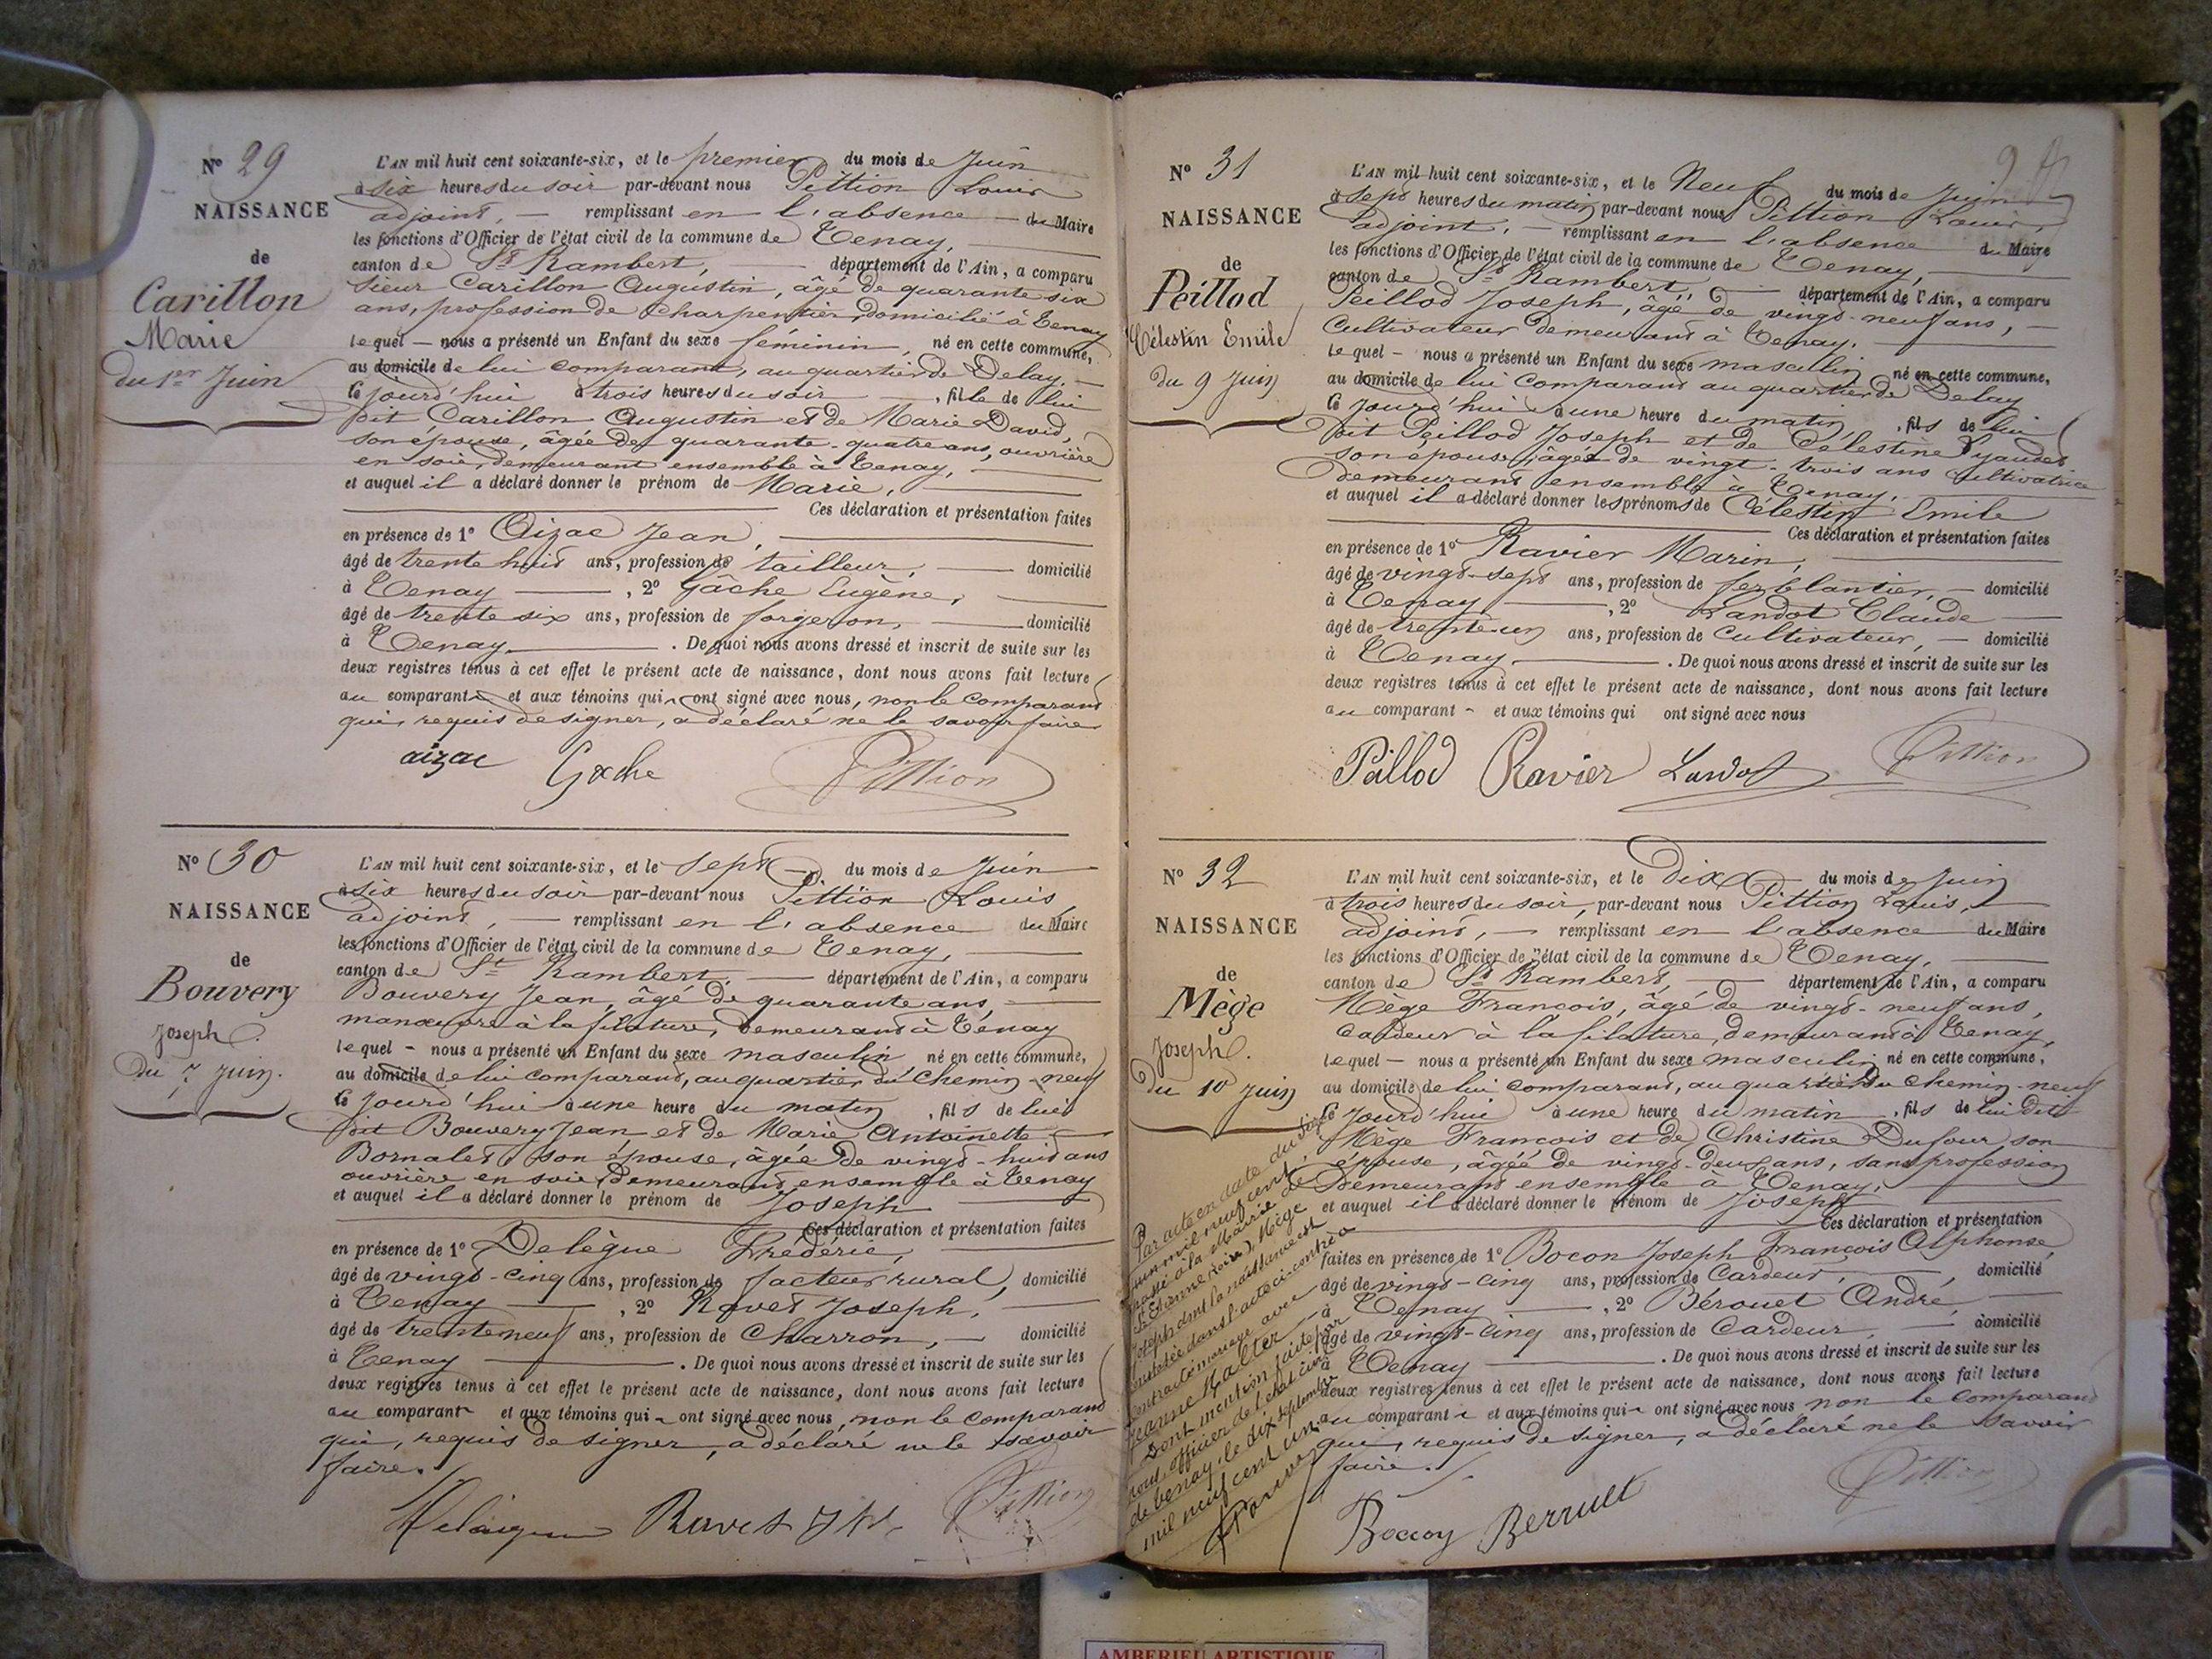 N° 29
NAISSANCE
de
Carillon
Marie
du 1er Juin
L'AN mil huit cent soixante-six, et le premier du mois de Juin
à six heures du soir par-devant nous Pittion Louis
adjoint, — remplissant en l'absence — du Maire
les fonctions d'Officier de l'état civil de la commune de Tenay,
canton de St Rambert, département de l'Ain, a comparu
Sieur Carillon Augustin, âgé de quarante six
ans, profession de Charpentier, domicilié à Tenay
lequel — nous a présenté un Enfant du sexe féminin, né en cette commune,
au domicile de lui comparant, au quartier de Delay, —
le jourd'hui à trois heures du soir, fille de lui
dit Carillon Augustin et de Marie David,
son épouse, âgée de quarante-quatre ans, ouvrière
en soie, demeurant ensemble à Tenay,
et auquel il a déclaré donner le prénom de Marie,
Ces déclaration et présentation faites
en présence de 1° Aizac Jean,
âgé de trente huit ans, profession de tailleur, domicilié
à Tenay, 2° Gâche Eugène,
âgé de trente six ans, profession de forgeron, domicilié
à Tenay. De quoi nous avons dressé et inscrit de suite sur les
deux registres tenus à cet effet le présent acte de naissance, dont nous avons fait lecture
au comparant et aux témoins qui ont signé avec nous, non le comparant
qui, requis de signer, a déclaré ne le savoir faire
aizac Gache Pittion
N° 30
NAISSANCE
de
Bouvery
Joseph.
Du 7 Juin.
L'AN mil huit cent soixante-six, et le sept du mois de Juin
à six heures du soir par-devant nous Pittion Louis
adjoint, — remplissant en l'absence du Maire
les fonctions d'Officier de l'état civil de la commune de Tenay,
canton de St Rambert, département de l'Ain, a comparu
Bouvery Jean, âgé de quarante ans,
manœuvre à la filature, demeurant à Tenay
lequel - nous a présenté un Enfant du sexe masculin né en cette commune,
au domicile de lui comparant, au quartier du Chemin-neuf
le jourd'hui à une heure du matin, fils de lui
dit Bouvery Jean et de Marie Antoinette
Bornalet, son épouse, âgée de vingt-huit ans
ouvrière en soie, demeurant ensemble à Tenay
et auquel il a déclaré donner le prénom de Joseph
Ces déclaration et présentation faites
en présence de 1° Delègue Frédéric,
âgé de vingt-cinq ans, profession de facteur rural, domicilié
à Tenay, 2° Ravet Joseph,
âgé de trente neuf ans, profession de Charron, — domicilié
à Tenay. De quoi nous avons dressé et inscrit de suite sur les
deux registres tenus à cet effet le présent acte de naissance, dont nous avons fait lecture
au comparant et aux témoins qui ont signé avec nous, non le comparant
qui, requis de signer, a déclaré ne le savoir
faire.
Ravet Pittion
N° 31
NAISSANCE
de
Peillod
Célestin Emile
Du 9 Juin
L'AN mil huit cent soixante-six, et le Neuf du mois de Juin
à sept heures du matin par-devant nous Pittion Louis,
adjoint, — remplissant en l'absence du Maire
les fonctions d'Officier de l'état civil de la commune de Tenay,
canton de St Rambert, département de l'Ain, a comparu
Peillod Joseph, âgé de vingt-neuf ans, —
Cultivateur demeurant à Tenay.
lequel - nous a présenté un Enfant du sexe masculin né en cette commune,
au domicile de lui comparant au quartier de Delay
le jourd'hui à une heure du matin, fils de lui
dit Peillod Joseph et de Célestine
son épouse, âgée de vingt-trois ans Cultivatrice
demeurant ensemble à Tenay.
et auquel il a déclaré donner les prénoms de Célestin Emile
Ces déclaration et présentation faites
en présence de 1° Ravier Marin,
âgé de vingt-sept ans, profession de ferblantier, — domicilié
à Tenay, 2° Landot Claude
âgé de trente-un ans, profession de Cultivateur, — domicilié
à Tenay. De quoi nous avons dressé et inscrit de suite sur les
deux registres tenus à cet effet le présent acte de naissance, dont nous avons fait lecture
au comparant - et aux témoins qui ont signé avec nous
Peillod Ravier Landot Pittion
N° 32
NAISSANCE
de
Mège
Joseph.
Du 10 Juin
L'AN mil huit cent soixante-six, et le Dix du mois de Juin
à trois heures du soir, par-devant nous Pittion Louis,
adjoint, — remplissant en l'absence du Maire
les fonctions d'Officier de l'état civil de la commune de Tenay,
canton de St Rambert, département de l'Ain, a comparu
Mège François, âgé de vingt-neuf ans,
Cardeur à la filature, demeurant à Tenay,
lequel — nous a présenté un Enfant du sexe masculin né en cette commune,
au domicile de lui comparant, au quartier du Chemin-neuf
le jourd'hui à une heure du matin, fils de lui dit
Mège François et de Christine Dufour, son
épouse, âgée de vingt-deux ans, sans profession
Demeurant ensemble à Tenay.
et auquel il a déclaré donner le prénom de Joseph
Ces déclaration et présentation
faites en présence de 1° Bocon Joseph François Alphonse,
âgé de vingt-cinq ans, profession de Cardeur, domicilié
à Tenay, 2° Bérouet André,
âgé de vingt-cinq ans, profession de Cardeur, domicilié
à Tenay. De quoi nous avons dressé et inscrit de suite sur les
deux registres tenus à cet effet le présent acte de naissance, dont nous avons fait lecture
au comparant et aux témoins qui ont signé avec nous non le comparant
qui, requis de signer, a déclaré ne le savoir
faire.
Pittion
Par acte en date du
juin mil neuf cent,
passé à la Mairie de
St Etienne (Loire), Mège
Joseph dont la naissance est
constatée dans l'acte ci-contre a
contracté mariage avec
Jeanne
Dont mention faite par
nous officier de l'état civil
de Tenay, le dix septembre
mil neuf cent un.
AMBERIEU ARTISTIQUE